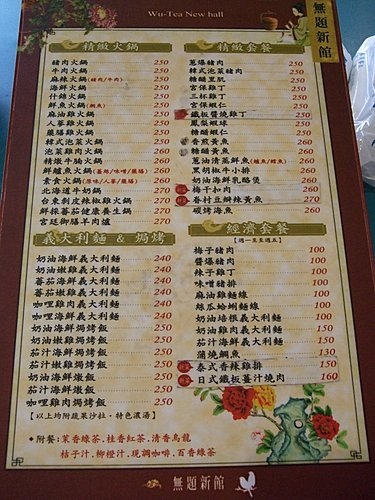 Wu-Tea New hall
無題新館
精緻火鍋
豬肉火鍋 250
牛肉火鍋 250
麻辣火鍋(豬肉/牛肉) 250
海鮮火鍋 250
什錦火鍋 250
鮮魚火鍋(鯛魚) 250
麻油雞火鍋 250
人蔘雞火鍋 250
藥膳雞火鍋 250
韓式泡菜火鍋 250
泡菜雞肉火鍋 260
精燉牛腩火鍋 260
鮮鱸魚火鍋 260
素食火鍋(原味/人蔘/藥膳) 260
北海道牛奶鍋 270
台東剝皮辣椒雞火鍋 270
鮮採蕃茄健康養生鍋 270
宮廷御膳羊肉爐 270
義大利麵 & 焗烤
奶油海鮮義大利麵 240
奶油嫩雞義大利麵 240
蕃茄海鮮義大利麵 240
蕃茄嫩雞義大利麵 240
咖哩雞肉義大利麵 240
咖哩海鮮義大利麵 240
奶油海鮮焗烤飯 250
奶油嫩雞焗烤飯 250
茄汁海鮮焗烤飯 250
茄汁嫩雞焗烤飯 250
奶油海鮮燉飯 250
茄汁海鮮燉飯 250
咖哩雞肉焗烤飯 250
【以上均附蔬果沙拉‧特色濃湯】
精緻套餐
蔥爆豬肉 250
韓式泡菜豬肉 250
糖醋里肌 250
宮保雞丁 250
三杯雞丁 250
宮保蝦仁 250
鐵板醬燒雞丁 250
鳳梨蝦球 250
糖醋蝦仁 250
香煎黃魚 260
糖醋黃魚 260
蔥油清蒸鮮魚(鱸魚/鱈魚) 260
黑胡椒牛小排 260
奶油海鮮乳酪煲 260
梅干扣肉 260
眷村豆瓣辣黃魚 260
碳烤海魚 260
經濟套餐
【週一至週五】
梅子豬肉 100
醬爆豬肉 100
辣子雞丁 100
味噌豬排 100
麻油雞麵線 100
絲瓜蛤蜊麵線 100
奶油培根義大利麵 100
奶油雞肉義大利麵 150
茄汁雞肉義大利麵 150
蒲燒鯛魚 130
泰式香辣雞排 150
日式鐵板薑汁燒肉 160
◆附餐:茉香綠茶‧桂香紅茶‧清香烏龍
桔子汁‧柳橙汁‧現調咖啡‧百香綠茶
無題新館